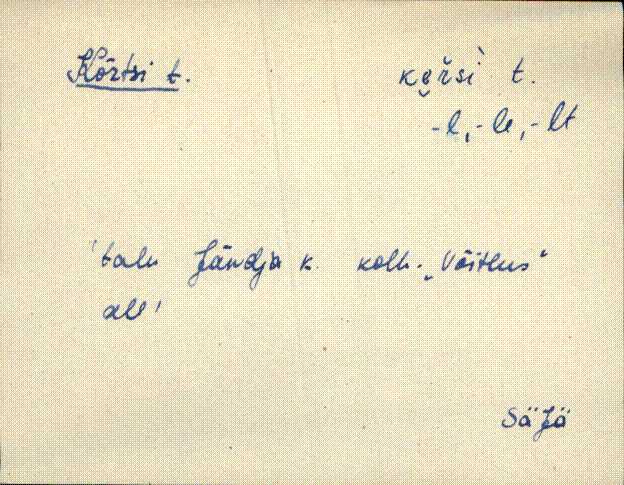 Kõrtsi t. ke̮řsì t.
-l, -le, -lt
'talu Jändja k. kolh. „Võitlus"
all'
SäJä